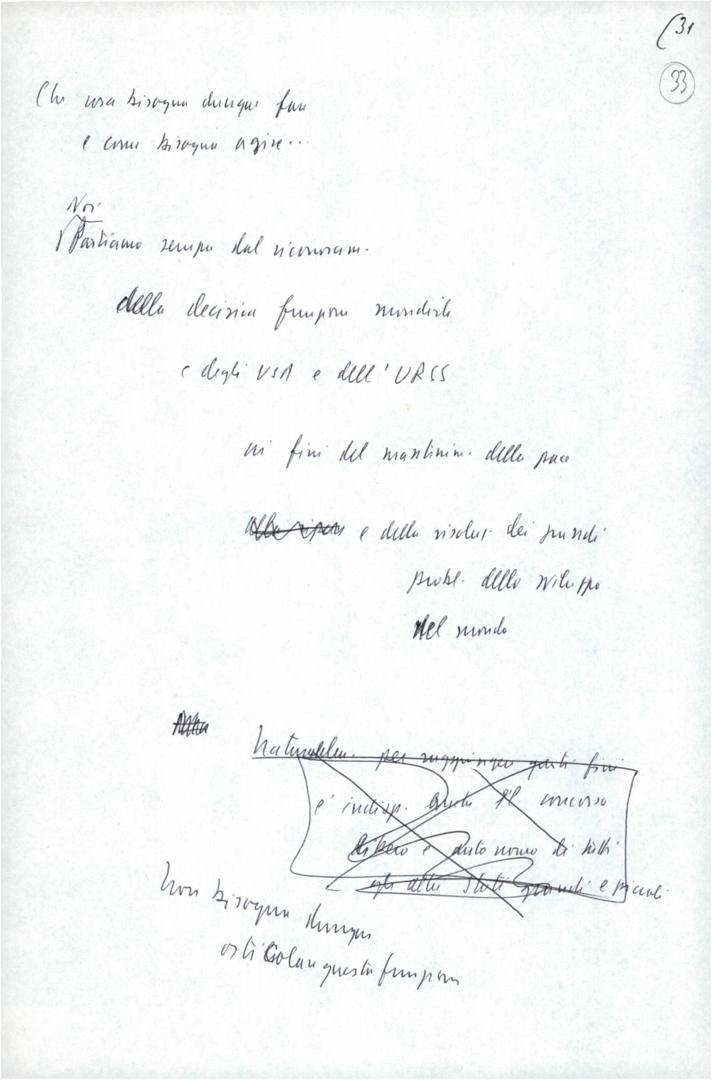 (31
33
Che cosa bisogna dunque fare
e come bisogna agire...
Noi
Partiamo sempre dal riconoscim.
della decisiva funzione mondiale
e degli USA e dell'URSS
ai fini del mantenim. della pace
e della risoluz. dei grandi
probl. dello sviluppo
del mondo
Naturalm. per raggiungere questi fini
e' indisp. anche il concorso
libero e autonomo di tutti
gli altri Stati grandi e piccoli.
Non bisogna dunque
ostacolare questa funzione